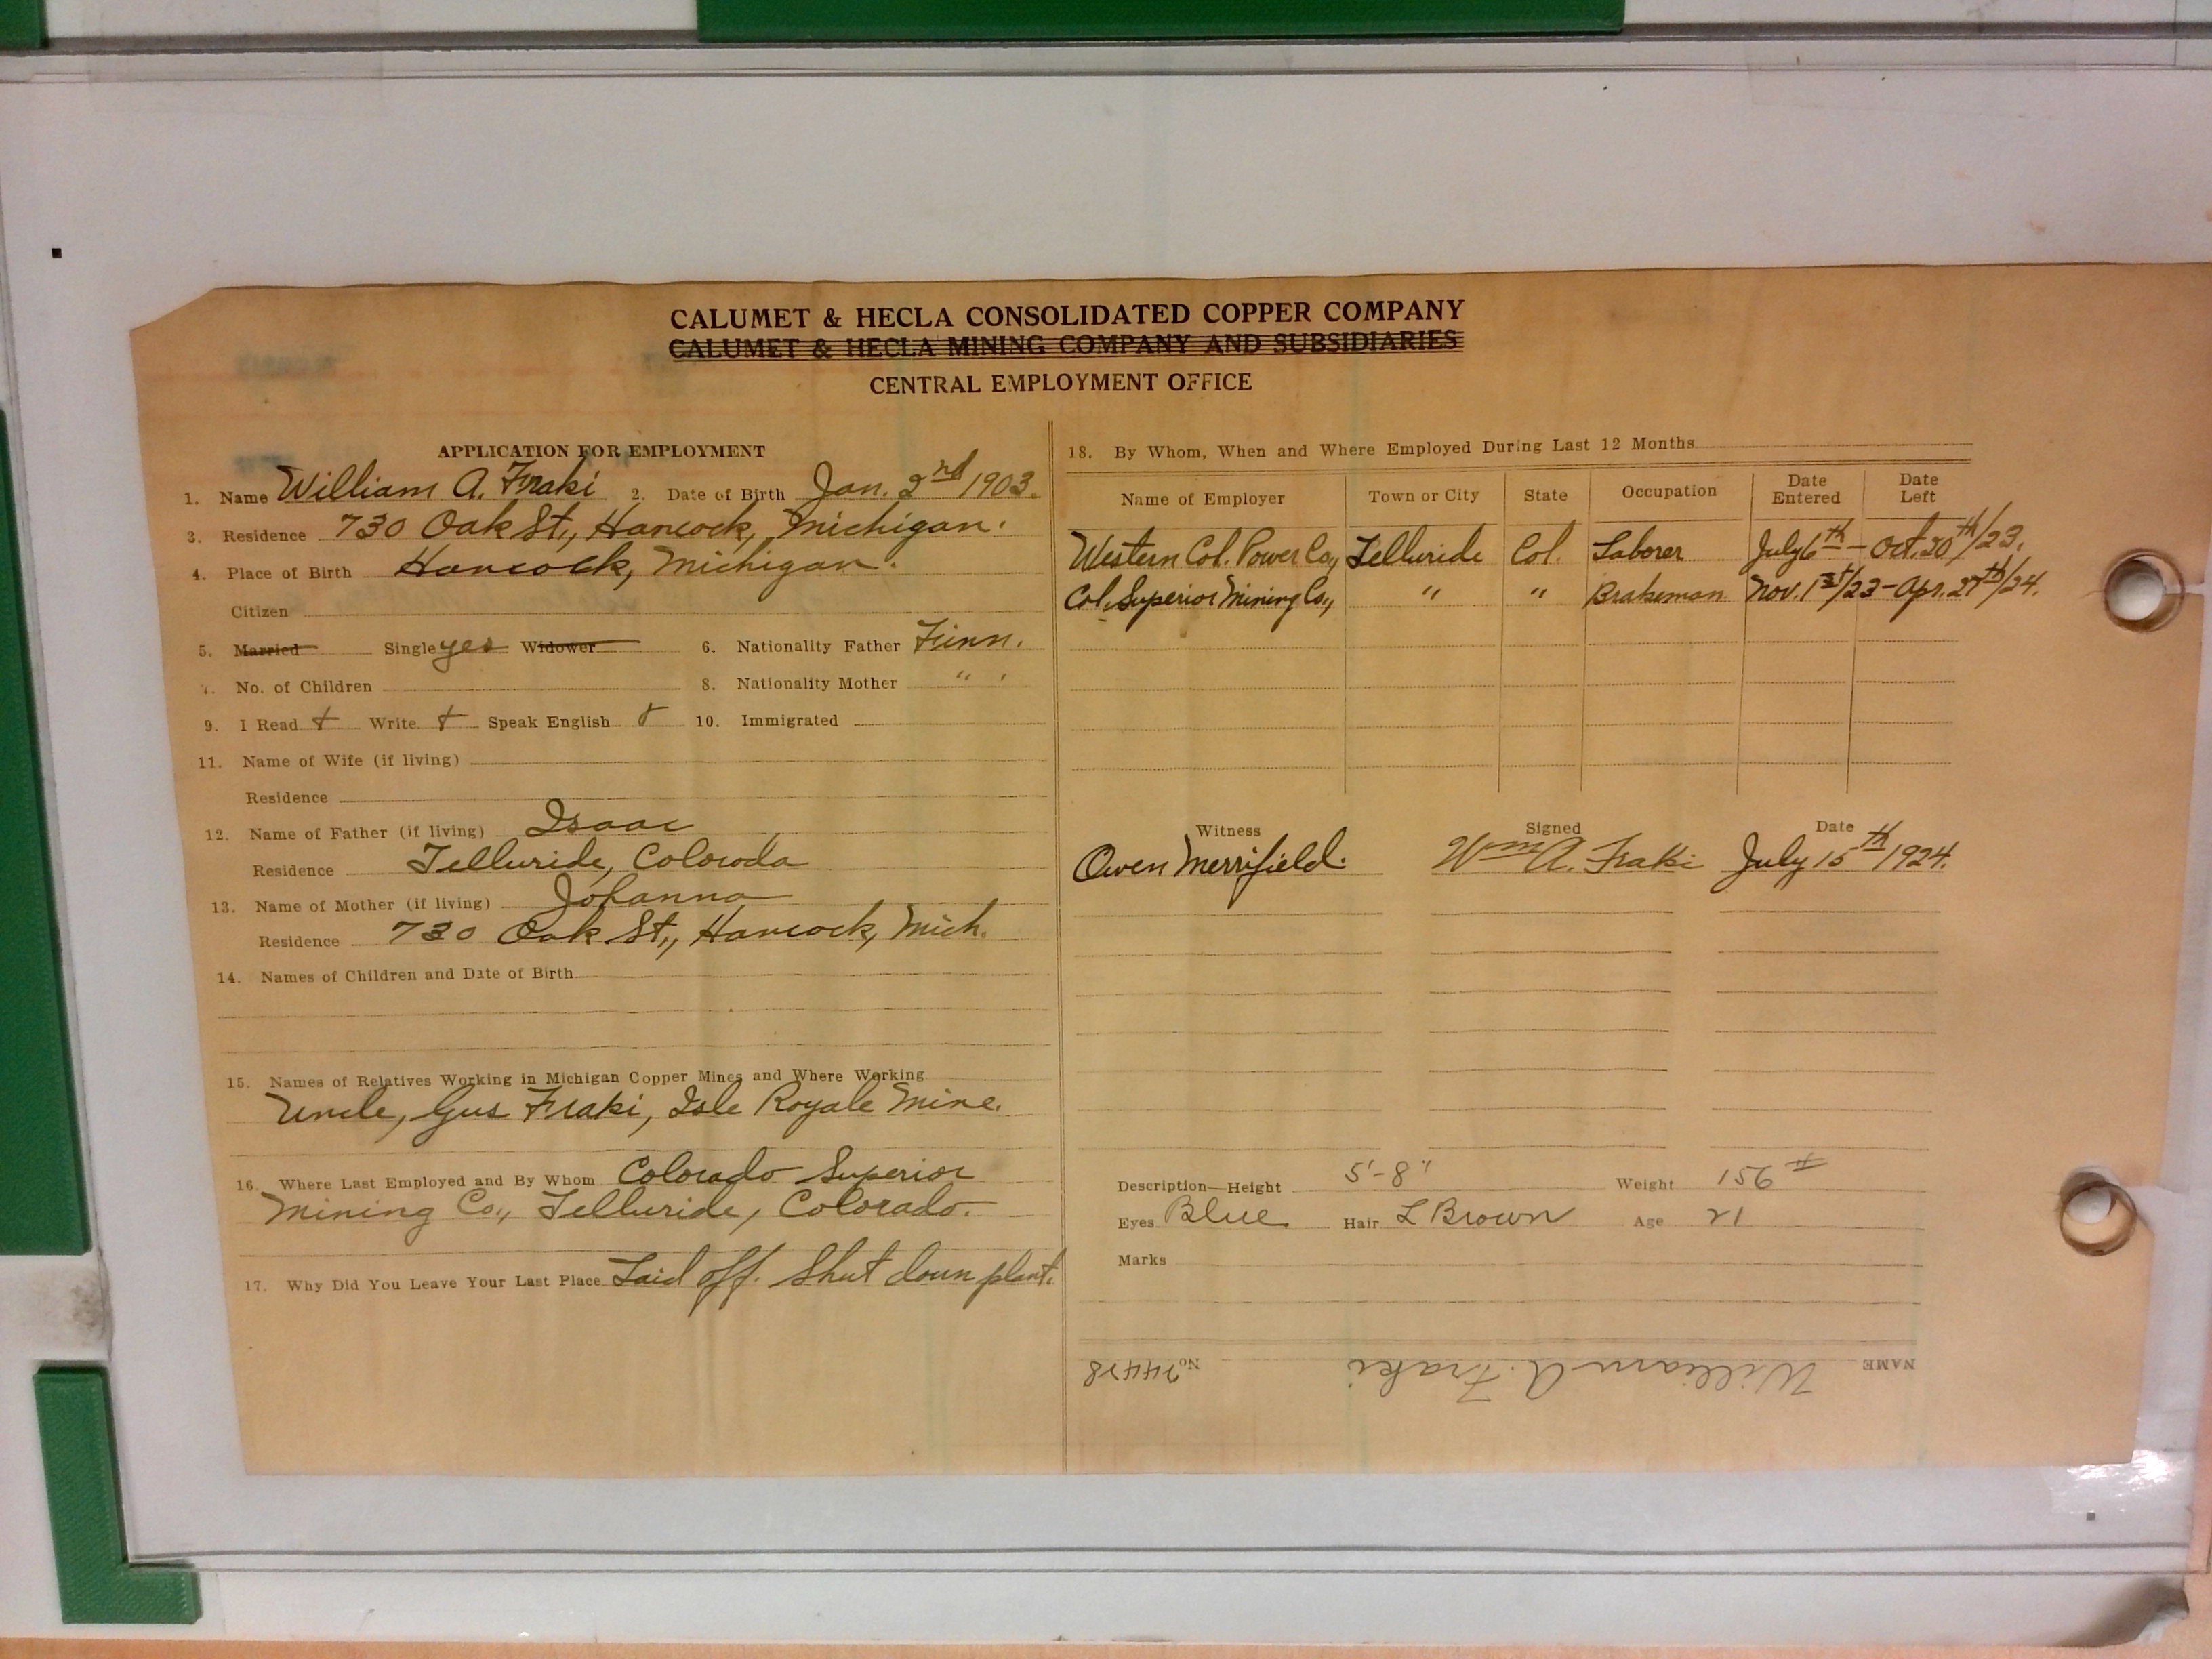 CALUMET & HECLA CONSOLIDATED COPPER COMPANY
CALUMET & HECLA MINING COMPANY AND SUBSIDIARIES
CENTRAL EMPLOYMENT OFFICE
APPLICATION FOR EMPLOYMENT
1. Name William A. Fraki 2. Date of Birth Jan. 2nd 1903.
3. Residence 730 Oak St., Hancock, Michigan.
4. Place of Birth Hancock, Michigan.
Citizen
5. Married Single yes Widower 6. Nationality Father Finn.
7. No. of Children 8. Nationality Mother " "
9. I Read + Write + Speak English + 10. Immigrated
11. Name of Wife (if living)
Residence
12. Name of Father (if living) Isaac
Residence Telluride, Colorado
13. Name of Mother (if living) Johanna
Residence 730 Oak St., Hancock, Mich.
14. Names of Children and Date of Birth
15. Names of Relatives Working in Michigan Copper Mines and Where Working
Uncle, Gus Fraki, Isle Royale Mine.
16. Where Last Employed and By Whom Colorado Superior
Mining Co., Telluride, Colorado.
17. Why Did You Leave Your Last Place Laid off. Shut down plant.
18. By Whom, When and Where Employed During Last 12 Months
Name of Employer Town or City State Occupation Date Entered Date Left
Western Col. Power Co., Telluride Col. Laborer July 6th - Oct. 30th/23.
Col. Superior Mining Co., " " Brakeman Nov. 1st/23 - Apr. 27th/24.
Witness Signed Date
Owen Merrifield. Wm A. Fraki July 15th 1924.
Description—Height 5'-8" Weight 156 #
Eyes Blue Hair L Brown Age 21
Marks
NAME William A. Fraki No. 24428